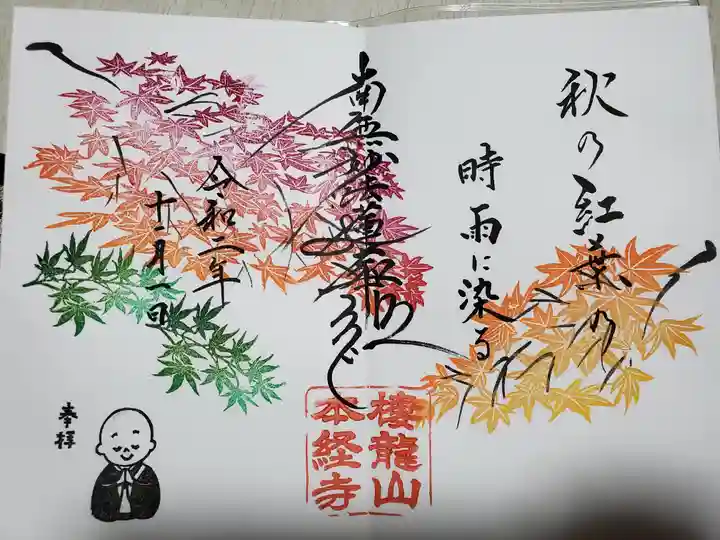 秋乃紅葉の
時雨に染る
南無妙法蓮華経
棲龍山
本経寺
令和二年
十二月一日
奉拝